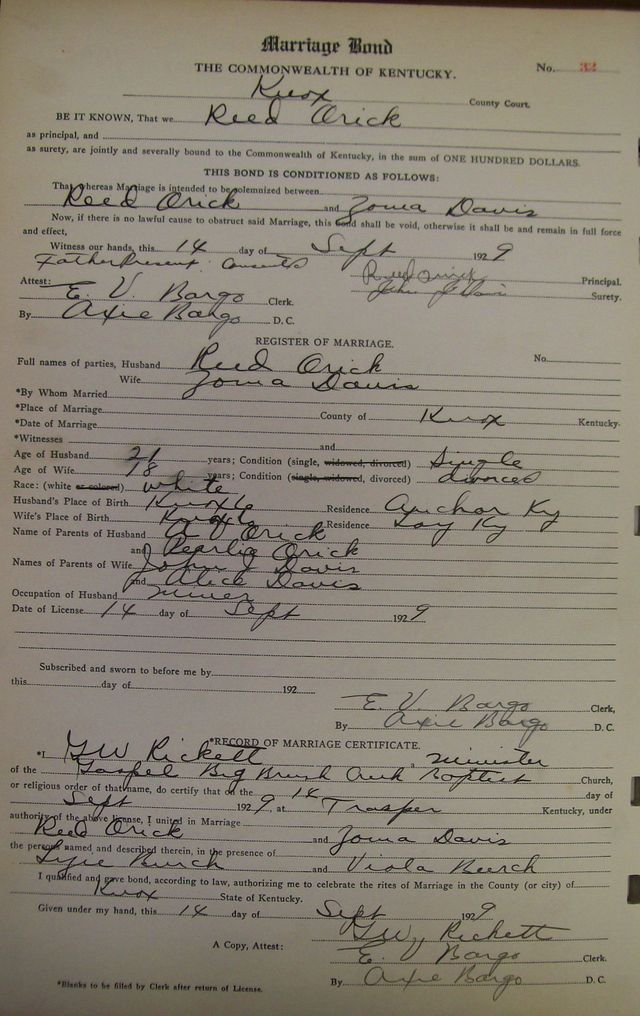 Marriage Bond
THE COMMONWEALTH OF KENTUCKY. No. 32
Knox County Court.
BE IT KNOWN, That we Reed Orick
as principal, and
as surety, are jointly and severally bound to the Commonwealth of Kentucky, in the sum of ONE HUNDRED DOLLARS.
THIS BOND IS CONDITIONED AS FOLLOWS:
That whereas Marriage is intended to be solemnized between
Reed Orick and Zoma Davis
Now, if there is no lawful cause to obstruct said Marriage, this bond shall be void, otherwise it shall be and remain in full force
and effect,
Witness our hands, this 14 day of Sept 1929
Father Present consents
Reed Orick Principal.
Attest: John J Davis Surety.
E. V. Bargo Clerk.
By Axie Bargo D. C.
REGISTER OF MARRIAGE.
Full names of parties, Husband Reed Orick No.
Wife Zoma Davis
*By Whom Married
*Place of Marriage County of Knox Kentucky
*Date of Marriage
*Witnesses and
Age of Husband 21 years; Condition (single, widowed, divorced) Single
Age of Wife 18 years; Condition (single, widowed, divorced) divorced
Race: (white or colored) white
Husband's Place of Birth Knox Co Residence Anchor Ky
Wife's Place of Birth Knox Co Residence Lay Ky
Name of Parents of Husband Orick
and Pearlie Orick
Names of Parents of Wife John J Davis
and Alice Davis
Occupation of Husband miner
Date of License 14 day of Sept 1929
Subscribed and sworn to before me by
this day of 192
E. V. Bargo Clerk,
By Axie Bargo D. C.
*RECORD OF MARRIAGE CERTIFICATE.
*I GW Rickett, minister
of the Gospel Big Brush Creek Baptist Church,
or religious order of that name, do certify that on the 14 day of
Sept 1929, at Trosper Kentucky, under
authority of the above license, I united in Marriage
Reed Orick and Zoma Davis
the persons named and described therein, in the presence of
Burch and Viola Burch
I qualified and gave bond, according to law, authorizing me to celebrate the rites of Marriage in the County (or city) of
Knox State of Kentucky.
Given under my hand, this 14 day of Sept 1929
GW Rickett
A Copy, Attest: E. Bargo Clerk.
By Axie Bargo D. C.
*Blanks to be filled by Clerk after return of License.